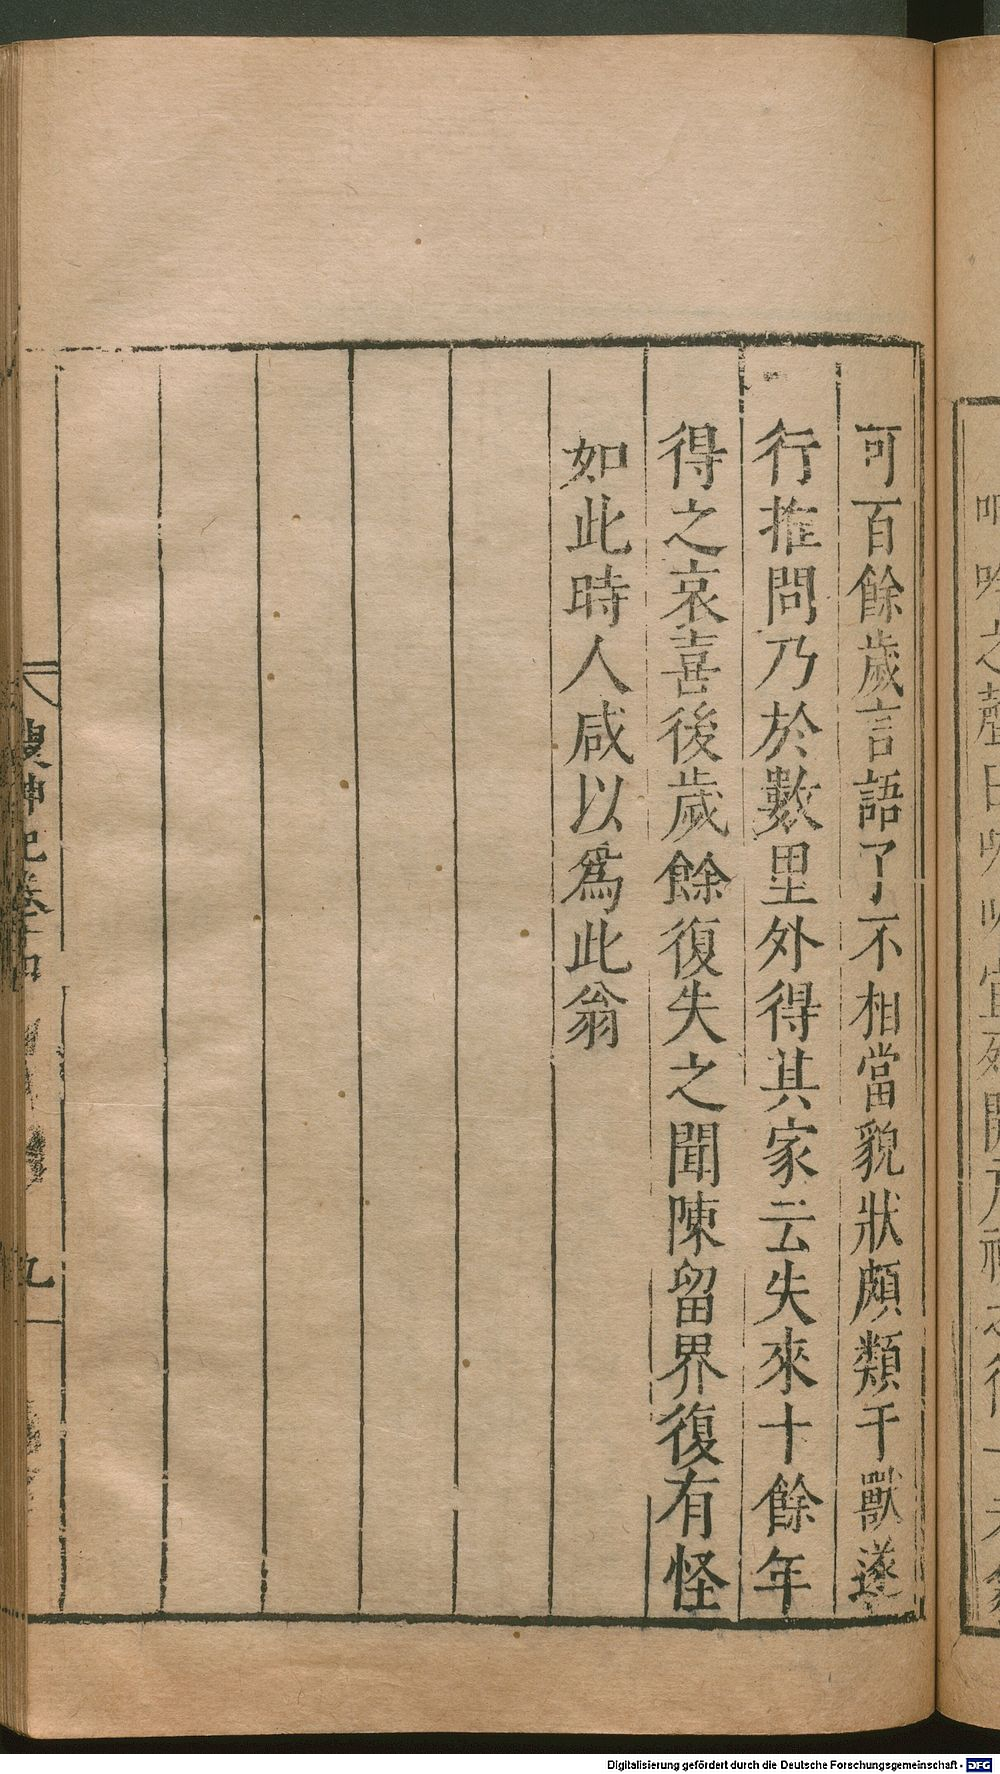 可百餘歲言語了不相當貌狀頗類于獸遂
行推問乃於數里外得其家云失來十餘年
得之哀喜後歲餘復失之聞陳留界復有怪
如此時人咸以爲此翁
搜神記卷十四
九
Digitalisierung gefördert durch die Deutsche Forschungsgemeinschaft - DFG